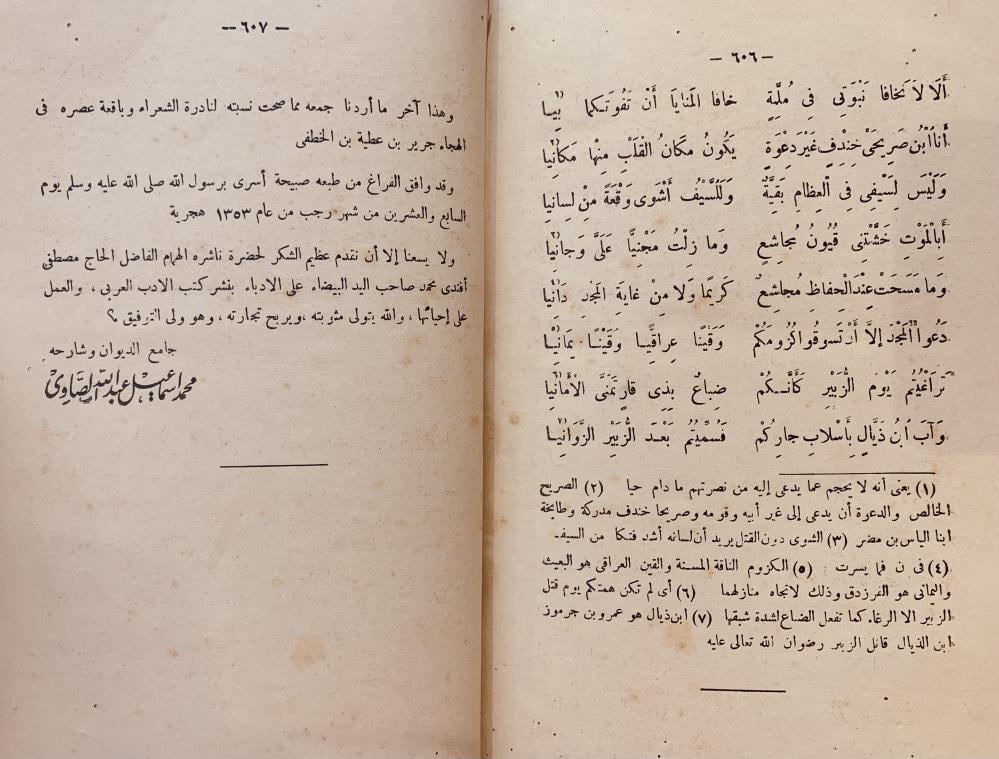 — ٦٠٦ —
أَلَا لَا تَخَافَا نَبْوَتِى فِى مُلِمَّةٍ خافا المَنَايَا أَنْ تَفُوتَكما بِيَا (١)
أَنا ابْنُ صَرِيحَىْ خِنْدِفٍ غَيْرَ دِعْوَةٍ يَكُونُ مَكانُ القَلْبِ مِنْها مَكانِيا (٢)
وَلَيْسَ لِسَيْفِى فِى الْعِظامِ بَقِيَّةٌ وَلَلسَّيْفُ أَشْوَى وَقْعَةً مِنْ لِسانِيا (٣)
أَبِالْمَوْتِ خَشَّتْنِى قُيُونُ مُجاشِعٍ وَما زِلْتُ مَجْنِيًّا عَلَىَّ وَجانِيا (٤)
وَما مَسَحَتْ عِنْدَ الْحِفاظِ مُجاشِعٌ كَرِيمًا وَلا مِنْ غايَةِ المَجْدِ دَانِيا
دَعُوا الْمَجْدَ إِلا أَنْ تَسوقُوا كَزُومَكُمْ وَقَيْنًا عِراقِيًّا وَقَيْنًا يَمانِيا (٥)
تَراغَيْتُمُ يَوْمَ الزُّبَيْرِ كَأَنَّكُمْ ضِباعٌ بِذِى قارٍ تَمَنَّى الأَمانِيا (٦)
وَآبَ ابْنُ ذَيَّالٍ بِأَسْلابِ جارِكُمْ فَسُمِّيتُمُ بَعْدَ الزُّبَيْرِ الزَّوانِيا (٧)
(١) يعنى أنه لا يحجم عما يدعى إليه من نصرتهم ما دام حيا (٢) الصريح
الخالص والدعوة أن يدعى إلى غير أبيه وقومه وصريحا خندف مدركة وطابخة
ابنا الياس بن مضر (٣) الشوى دون القتل يريد أن لسانه أشد فتكا من السيف
(٤) فى ن فما يسرت (٥) الكزوم الناقة المسنة والقين العراقى هو البعيث
واليمانى هو الفرزدق وذلك لاتجاه منازلهما (٦) أى لم تكن همتكم يوم قتل
الزبير الا الرغاء كما تفعل الضباع لشدة شبقها (٧) ابن ذيال هو عمرو بن جرموز
ابن الذيال قاتل الزبير رضوان الله تعالى عليه
— ٦٠٧ —
وهذا آخر ما أردنا جمعه مما صحت نسبته لنادرة الشعراء وباقعة عصره فى
الهجاء جرير بن عطية بن الخطفى
وقد وافق الفراغ من طبعه صبيحة أسرى برسول الله صلى الله عليه وسلم يوم
السابع والعشرين من شهر رجب من عام ١٣٥٣ هجرية
ولا يسعنا إلا أن نقدم عظيم الشكر لحضرة ناشره الهمام الفاضل الحاج مصطفى
أفندى محمد صاحب اليد البيضاء على الادباء بنشر كتب الادب العربى ، والعمل
على إحيائها ، والله يتولى مثوبته ، ويربح تجارته ، وهو ولى التوفيق ؟
جامع الديوان وشارحه
محمد اسماعيل عبد الله الصاوى